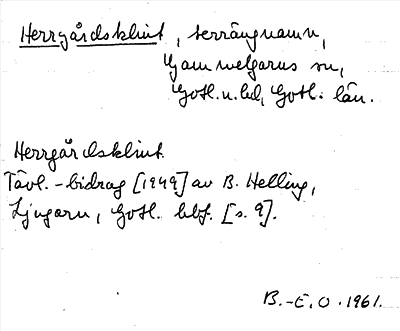 Herrgårdsklint, terrängnamn,
Gammelgarns sn,
Gotl. n. hd, Gotl:s län.
Herrgårdsklint.
Tävl.-bidrag [1949] av B. Helling,
Ljugarn, Gotl. hbf. [s. 9].
B.-E. O. 1961.